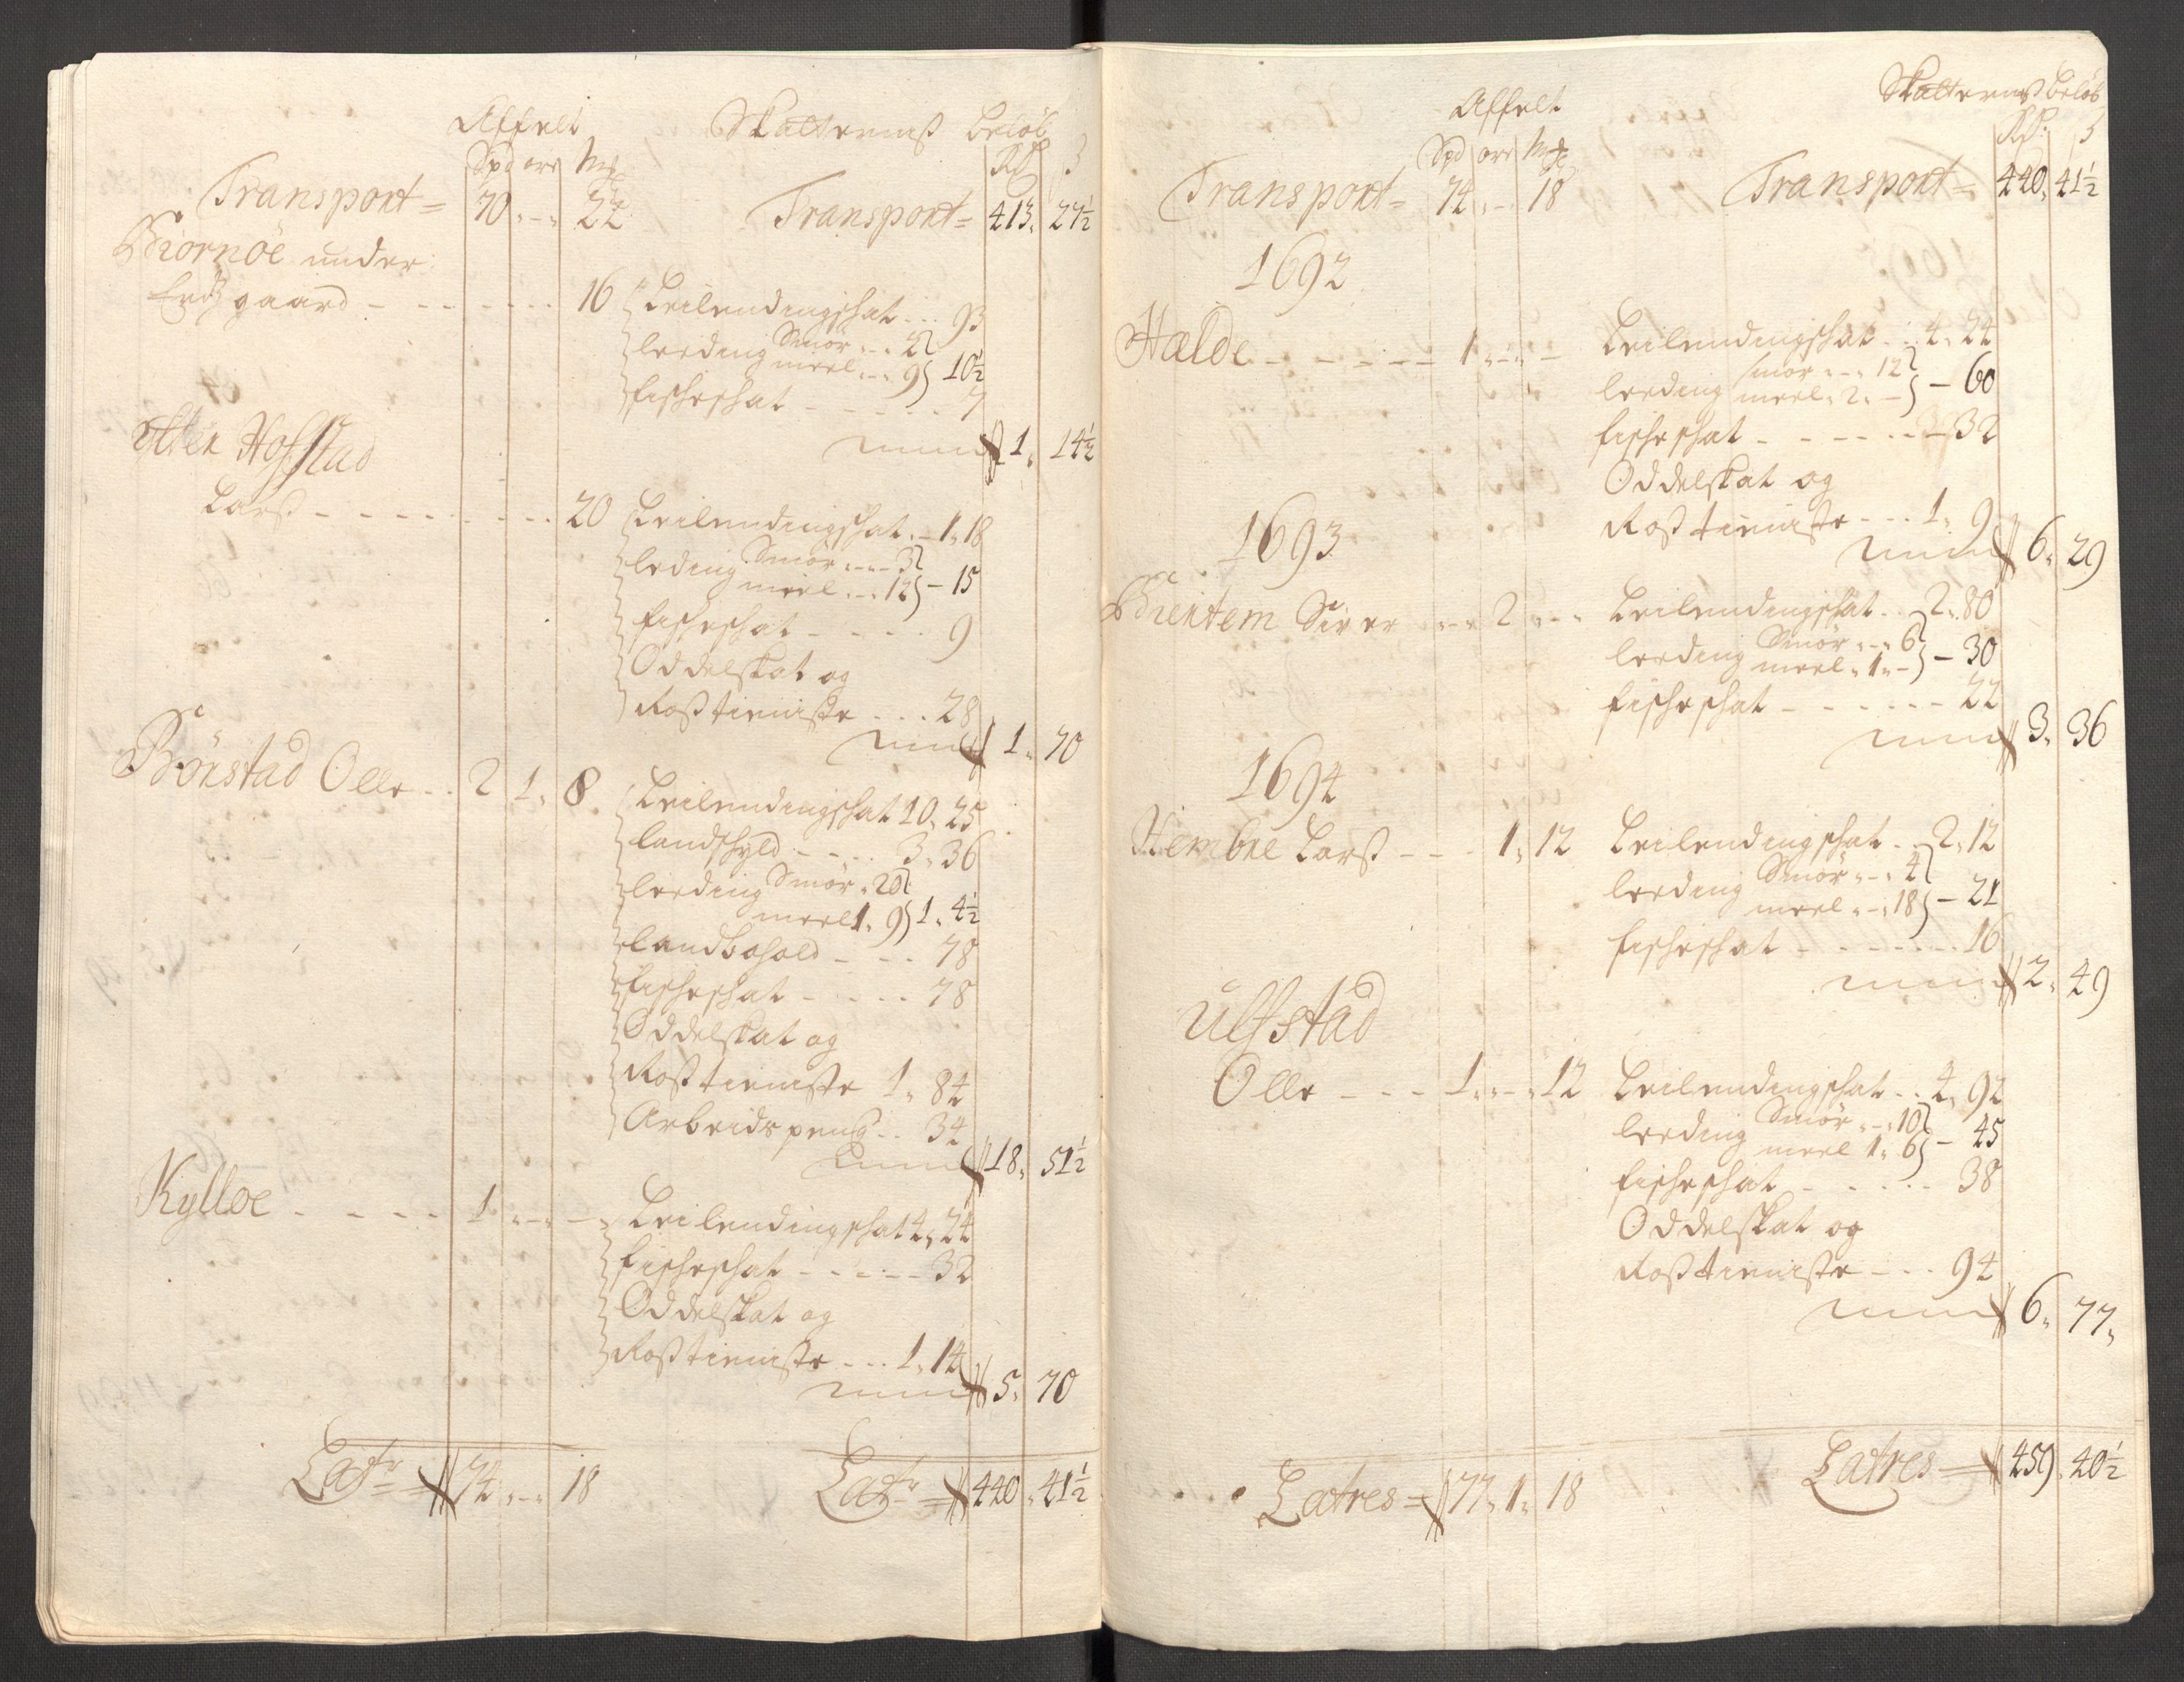 Affelt Skatternß beløb
Spd ore Mk Rd ß
Transport = 70 " - " 22 Transport = 413 " 27½
Biornöe under
Erds gaard - - - - - - 16 Leilendingschat - - 93
leeding Smör - - 2
meel - - 9 10½
fischeschat - - - - - 7
1 " 14½
Hofstad
Larß - - - - - - - - 20 Leilendingschat " - 1 " 18
leding Smör - - - 3
meel - - 12 - 15
fischeschat - - - - 9
Oddelskat og
Roßtieniste - - - 28
1 " 70
Bönstad Olle - - 2 1 " 8 Leilendingschat 10 " 25
landschyld - - - - 3 " 36
leeding Smör " 20
meel 1 " 9 1 " 4½
landbohold - - - 78
fischeschat - - - - 78
Oddelskat og
Roßtieniste 1 " 84
Arbeidspeng - - 34
18 " 51½
Kylloe - - - - 1 " - " - Leilendingschat 4 " 24
fischeschat - - - - - 32
Oddelskat og
Roßtieniste - - - 1 " 14
5 " 70
Latr = 74 " - " 18 Latr = 440 " 41½
Affelt Skatternß beløb
Spd ore Mk Rd ß
Transport = 74 " - " 18 Transport = 440 " 41½
1692
Hælde - - - - - - 1 " - " - Leilendingschat - - 4 " 24
leeding smör - - - 12
meel " 2 " - - 60
fischeschat - - - - - - 32
Oddelskat og
Roßtieniste - - - 1 " 9
6 " 29
1693
Siver " - " 2 " - " Leilendingschat - - 2 " 80
leeding Smör " - " 6
meel " 1 " - - 30
fischeschat - - - - - - 22
3 " 36
1694
Hembre Larß - - - 1 " 12 Leilendingschat - - 2 " 12
leeding Smör " - " 4
meel " - " 18 - 21
fischeschat - - - - - - 16
2 " 49
Ulfstad
Olle - - - 1 " - " 12 Leilendingschat - - 4 " 92
leeding Smör " - " 10
meel 1 " 6 - 45
fischeschat - - - - - 38
Oddelskat og
Roßtieniste - - - 94
6 " 77 "
Latres = 77 " 1 " 18 Latres = 459 " 40½